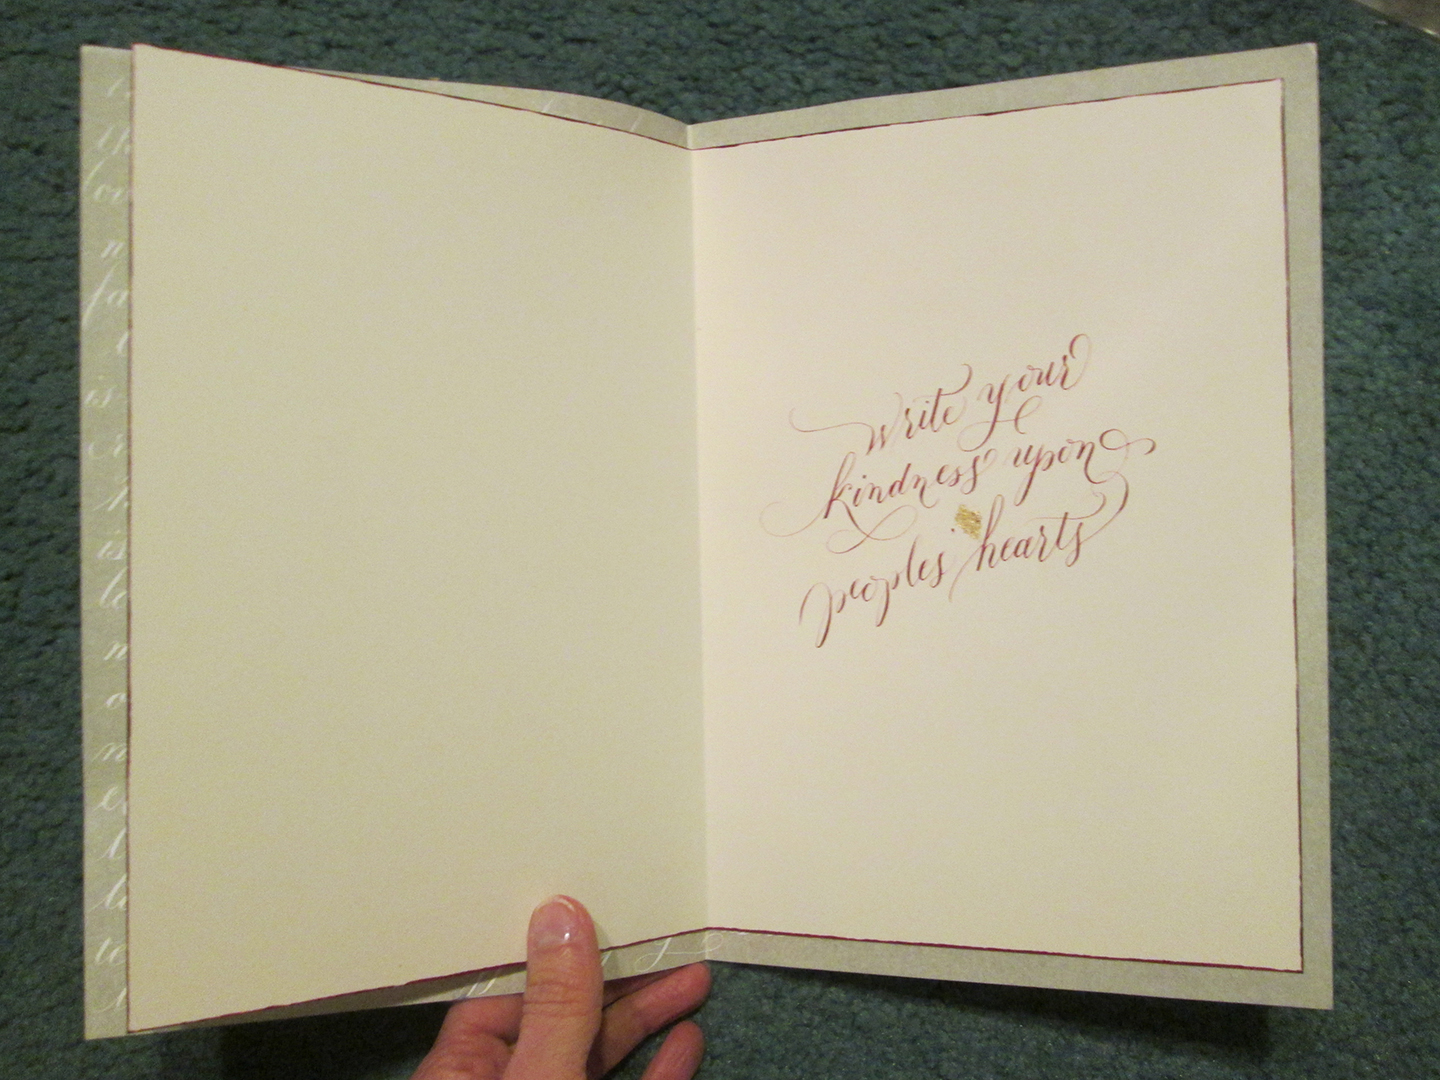 write your
kindness upon
peoples' hearts